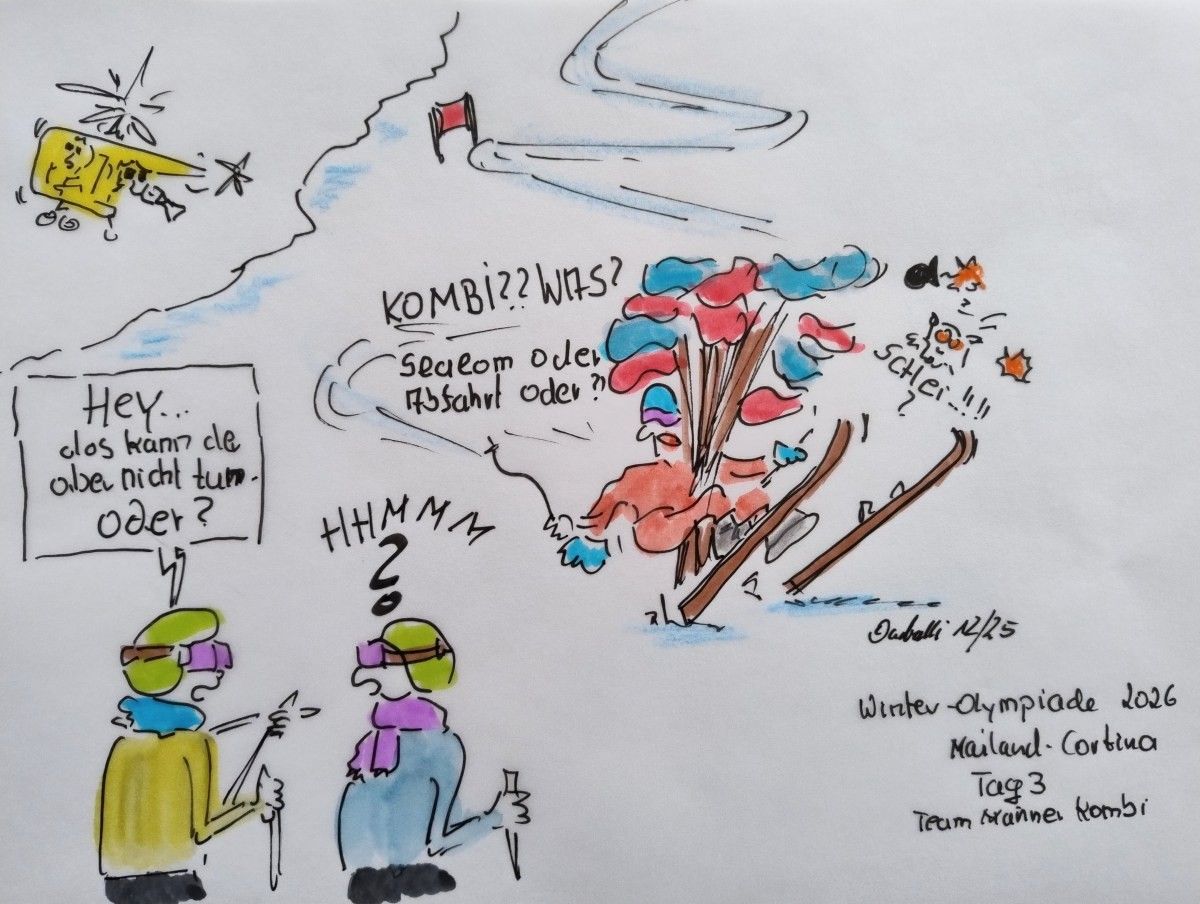 KOMBI?? WAS?
Slalom oder
Abfahrt oder?
SCHEI-!!!
?
Hey...
das kann de
aber nicht tun.
Oder?
HHMMM
?
12/25
Winter-Olympiade 2026
Mailand-Cortina
Tag 3
Team Männer Kombi